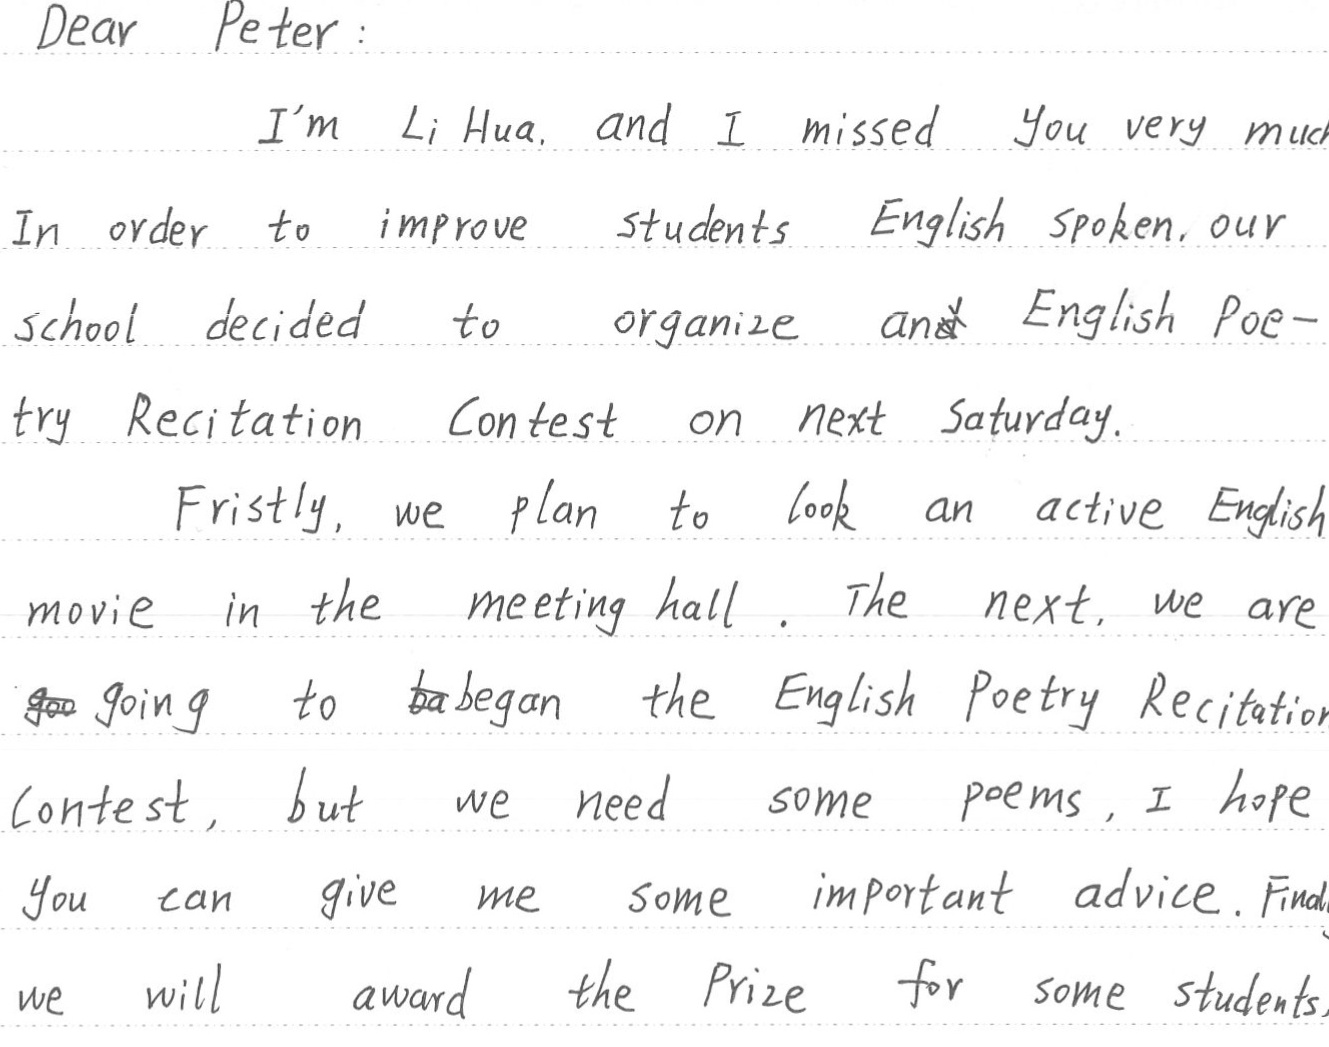 Dear Peter:
I'm Li Hua. and I missed you very much
In order to improve students English spoken. our
school decided to organize an English Poe-
try Recitation Contest on next Saturday.
Fristly, we plan to look an active English
movie in the meeting hall. The next. we are
going to began the English Poetry Recitation
Contest, but we need some poems, I hope
you can give me some important advice. Finally
we will award the Prize for some students.